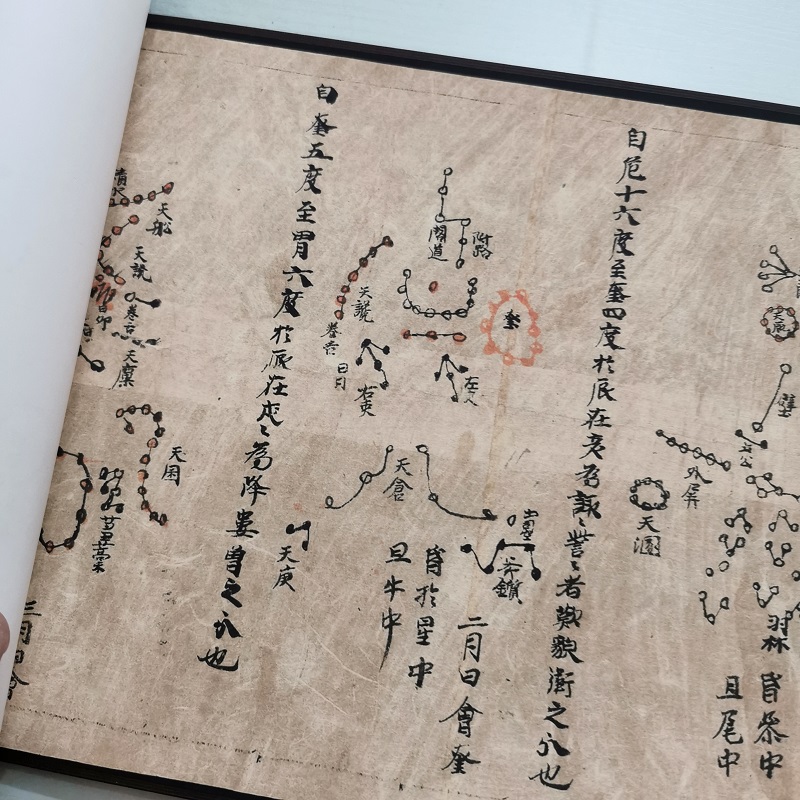 天廄
壁
土公
外屏
天溷
羽林
昏參中
旦尾中
自危十六度至奎四度於辰在亥為諏〻訾〻者歎貌衛之分也
附路
閣道
奎
左
天讒
卷舌
右更
天倉
鈇鑕
二月日會奎
昏於星中
旦牛中
天庾
自奎五度至胃六度於辰在戌〻為降婁魯之分也
天船
天讒
卷舌
天廩
天囷
芻藁
三月日會